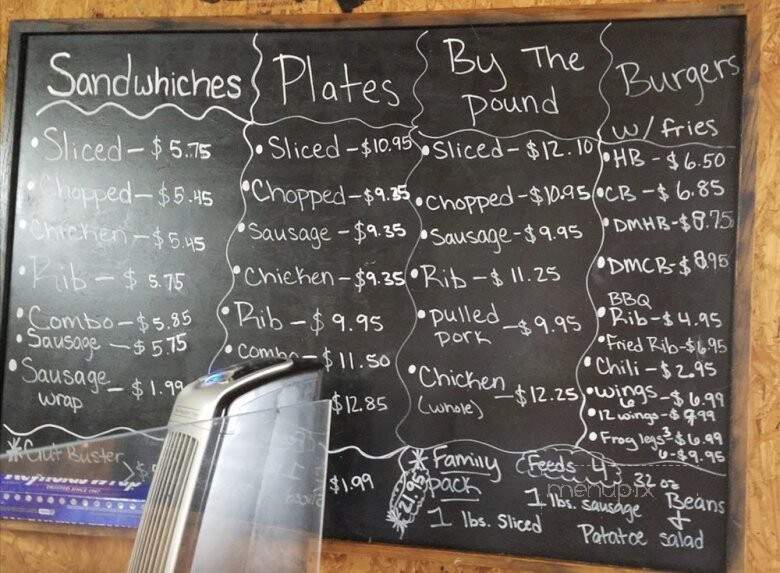 Sandwhiches
• Sliced - $5.75
• Chopped - $5.45
• Chicken - $5.45
• Rib - $ 5.75
• Combo - $5.85
• Sausage - $5.75
• Sausage wrap - $1.99
* Gut Buster
Plates
• Sliced - $10.95
• Chopped - $9.35
• Sausage - $9.35
• Chicken - $9.35
• Rib - $ 9.95
• combo - $11.50
$12.85
$1.99
By The
pound
• Sliced - $12.10
• Chopped - $10.95
• Sausage - $9.95
• Rib - $ 11.25
• pulled
pork - $9.95
• Chicken
(whole) - $12.25
Burgers
w/ fries
• HB - $6.50
• CB - $6.85
• DMHB - $8.75
• DMCB - $8.95
BBQ
• Rib - $4.95
• Fried Rib - $6.95
• Chili - $2.95
• wings 6 - $6.99
• 12 wings - $9.99
• Frog legs 3 - $6.99
6 - $9.95
* Family Feeds 4
pack
$21.95
1 lbs. Sliced
1 lbs. sausage
32 oz
Beans
&
Patatoe salad
menupix